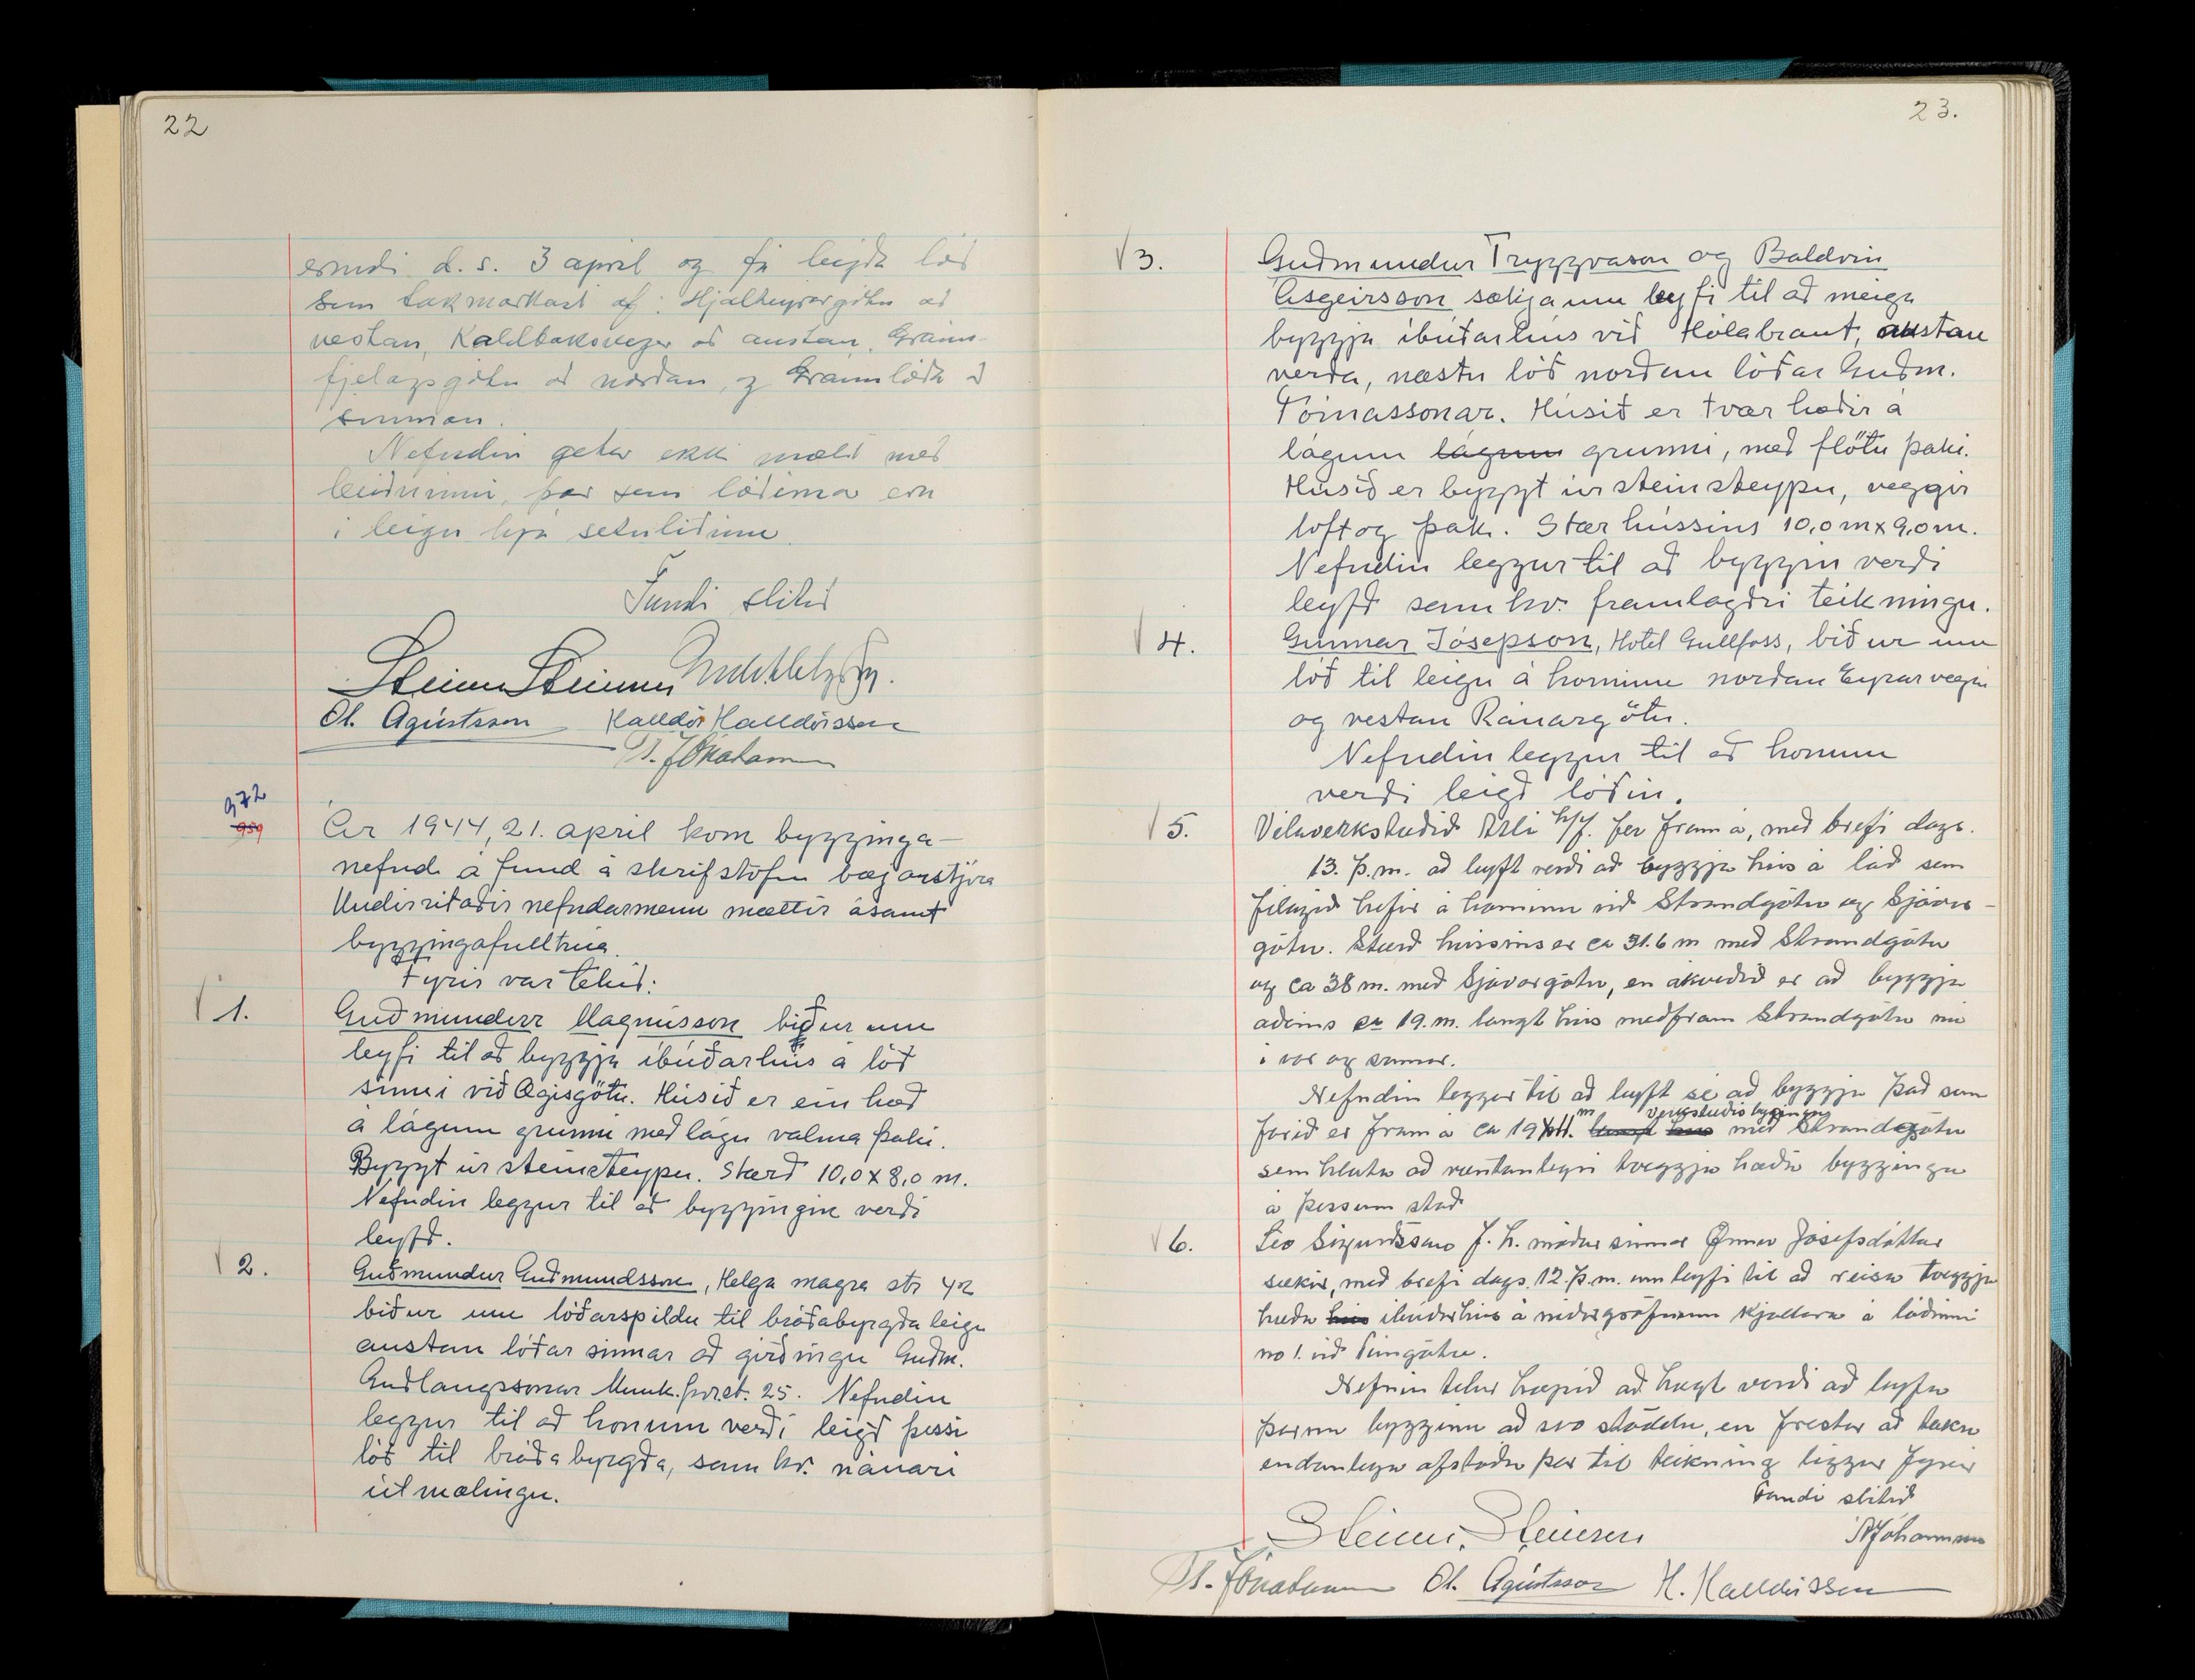 22
erindi d. s. 3 april og fá leigða lóð
sem takmarkast af: Hjalteyrargötu að
vestan, Kaldbaksvegur að austan, Gránu-
fjelagsgötu að norðan, og Gránulóða að
sunnan.
Nefndin getur ekki mælt með
beiðninni, þar sem lóðirnar eru
í leigu hjá setuliðinu.
Fundi slitið
Steinn Steinsen
Ól. Ágústsson Halldór Halldórsson
T. Jónatansson
972
959
Ár 1944, 21. april kom bygginga-
nefnd á fund á skrifstofu bæjarstjóra
Undirritaðir nefndarmenn mættir ásamt
byggingafulltrúa.
Fyrir var tekið:
1. Guðmundur Magnússon biður um
leyfi til að byggja íbúðarhús á lóð
sinni við Ægisgötu. Húsið er ein hæð
á lágum grunni með lágu valma þaki.
Byggt úr steinsteypu. Stærð 10,0 x 8,0 m.
Nefndin leggur til að byggingin verði
leyfð.
2. Guðmundur Guðmundsson, Helga magra str 42
biður um lóðarspildu til bráðabyrgða leigu
austan lóðar sinnar að girðingu Guðm.
Guðlaugssonar Munk.þv.st. 25. Nefndin
leggur til að honum verði leigð þessi
lóð til bráðabyrgða, samkv. nánari
útmælingu.
23.
3. Guðmundur Tryggvason og Baldvin
Ásgeirsson sækja um leyfi til að meiga
byggja íbúðarhús við Hólabraut, austan
verða, næstu lóð norðan lóðar Guðm.
Tómassonar. Húsið er tvær hæðir á
lágum lágum grunni, með flötu þaki.
Húsið er byggt úr steinsteypu, veggir
loft og þak. Stær hússins 10,0 m x 9,0 m.
Nefndin leggur til að byggin verði
leyfð samkv. framlagðri teikningu.
4. Gunnar Jósepson, Hotel Gullfoss, biður um
lóð til leigu á horninu norðan Eyrarvegin
og vestan Ránargötu.
Nefndin leggur til að honum
verði leigð lóðin.
5. Vélaverkstæðið Atli h/f. fer fram á, með brefi dags.
13. þ.m. að leyft verði að byggja hús á lóð sem
félagið hefir á horninu við Strandgötu og Sjávar-
götu. Stærð hússins er ca 31.6 m með Strandgötu
og ca 38 m. með Sjávargötu, en ákveðið er að byggja
aðeins ca 19. m. langt hús meðfram Strandgötu nú
í vor og sumar.
Nefndin leggur til að leyft sé að byggja það sem
farið er fram á ca 19 m. langt hús verkstæðis byggingu með Strandgötu
sem hluta að væntanlegri tveggja hæða byggingu
á þessum stað
6. Leo Sigurðsson f. h. móður sinnar Önnu Jósefsdóttur
sækir, með brefi dags. 12. þ.m. um leyfi til að reisa tveggja
hæða hús íbúðarhús á niðurgröfnum kjallara á lóðinni
no 1. við
Nefnin telur hæpið að hægt verði að leyfa
þarna byggingu að svo stöddu, en frestar að taka
endanlega afstöðu þar til teikning liggur fyrir
Fundi slitið
Steinn Steinsen
T. Jónatansson Ól. Ágústsson H. Halldórsson